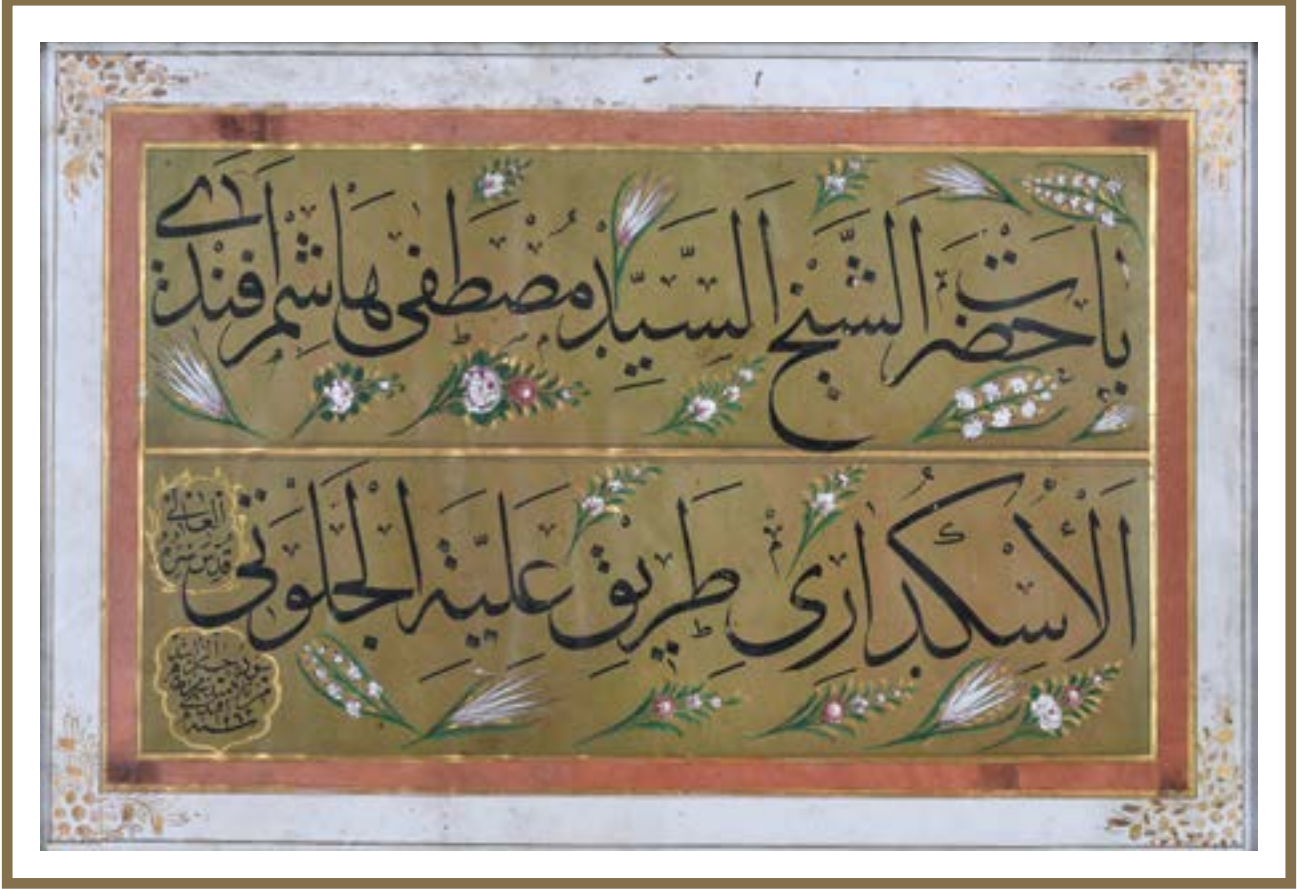 يا حضرت الشيخ السيد مصطفى هاشم افندى
الاسكدارى طريق علية الجلوتى
قدس سره العالى